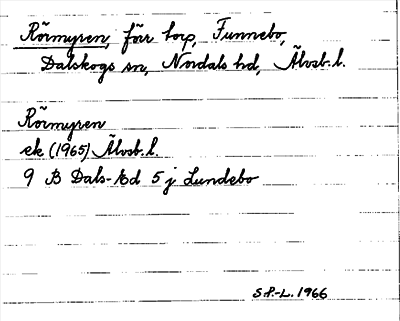 Rörmyren, förr torp, Funnebo,
Dalskogs sn, Nordals hd, Älvsb. l.
Rörmyren
ek (1965) Älvsb. l.
9 B Dals-Ed 5 j Lundebo
S P.-L. 1966